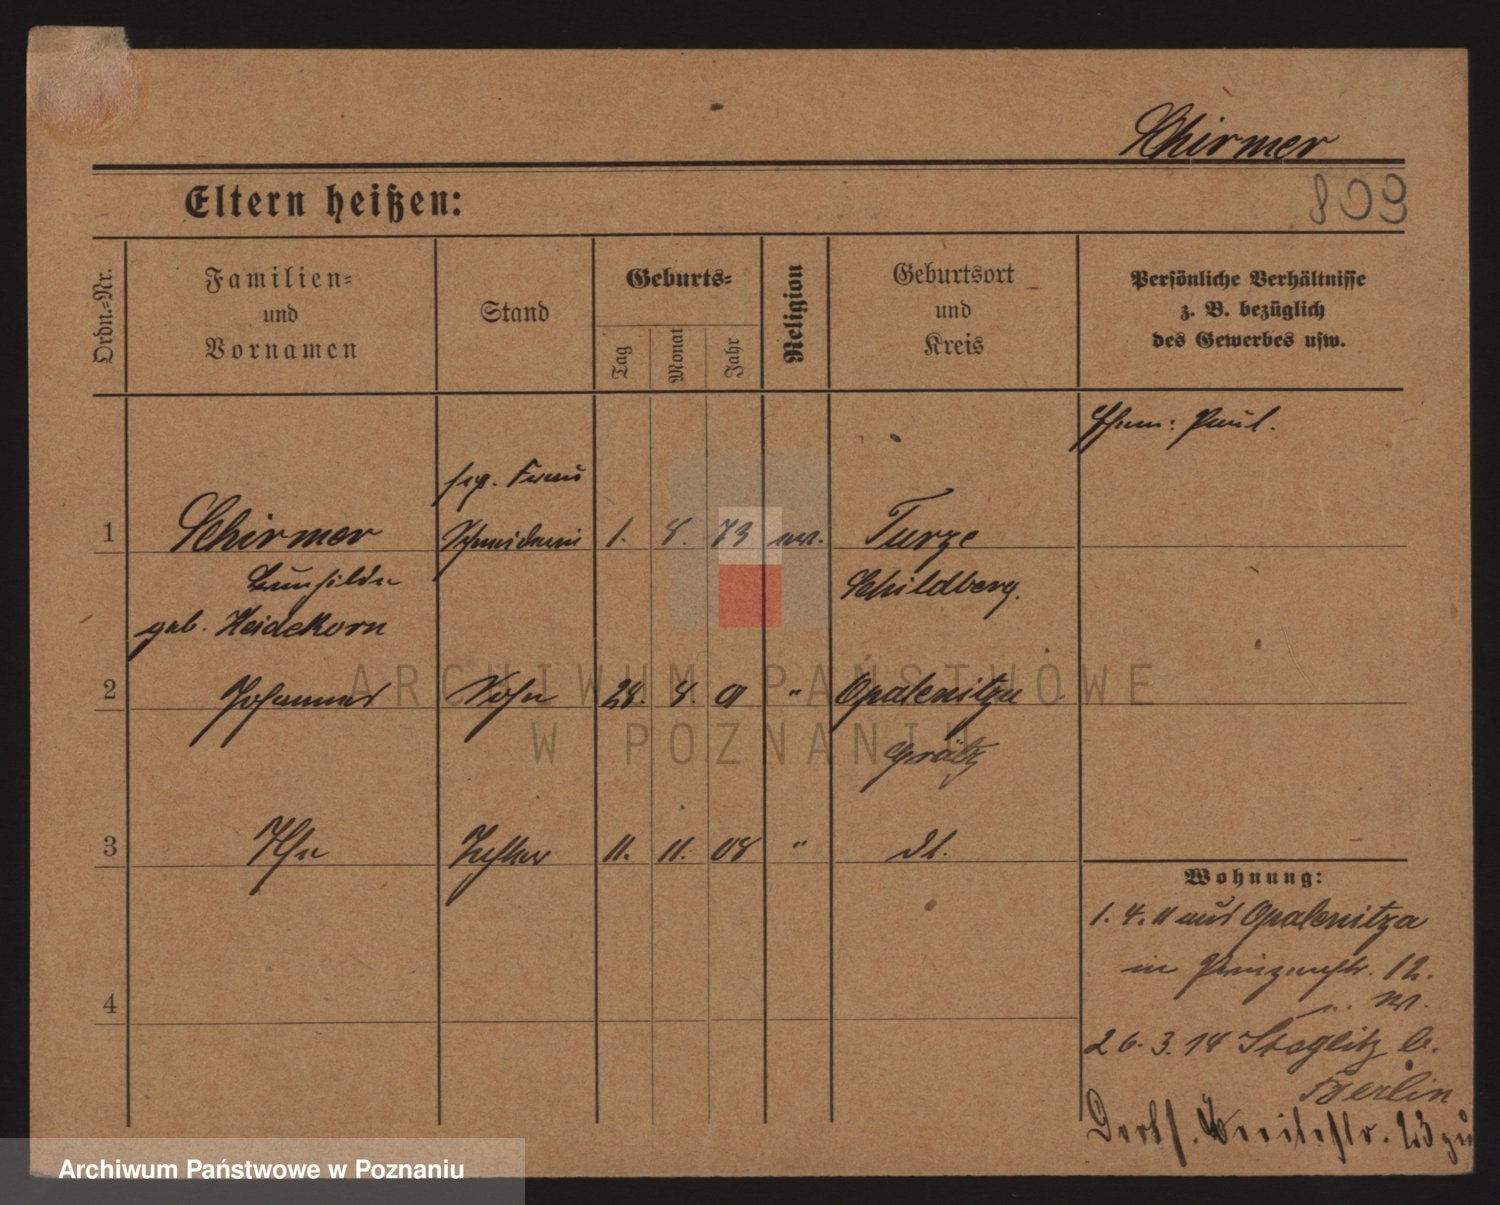 Schirmer
809
Eltern heißen:
Ordn.-Nr.
Familien-
und
Vornamen
Stand
Geburts-
Tag
Monat
Jahr
Religion
Geburtsort
und
Kreis
Persönliche Verhältnisse
z. B. bezüglich
des Gewerbes usw.
Ehem: Paul.
sep. Frau
1 Schirmer Schneiderin 1. 8. 73 ev. Turze
Schildberg.
geb. Heidekorn
2 Johannes Sohn 28. 8. 01 " Opalenitza
Grätz
3 Ilse Tochter 11. 11. 08 " dt.
4
Wohnung:
1. 4. 11 aus Opalenitza
in Prinzenstr. 12.
26. 3. 14 Steglitz b.
Berlin
Breitestr. 23 zu
ARCHIWUM PAŃSTWOWE
W POZNANIU
Archiwum Państwowe w Poznaniu